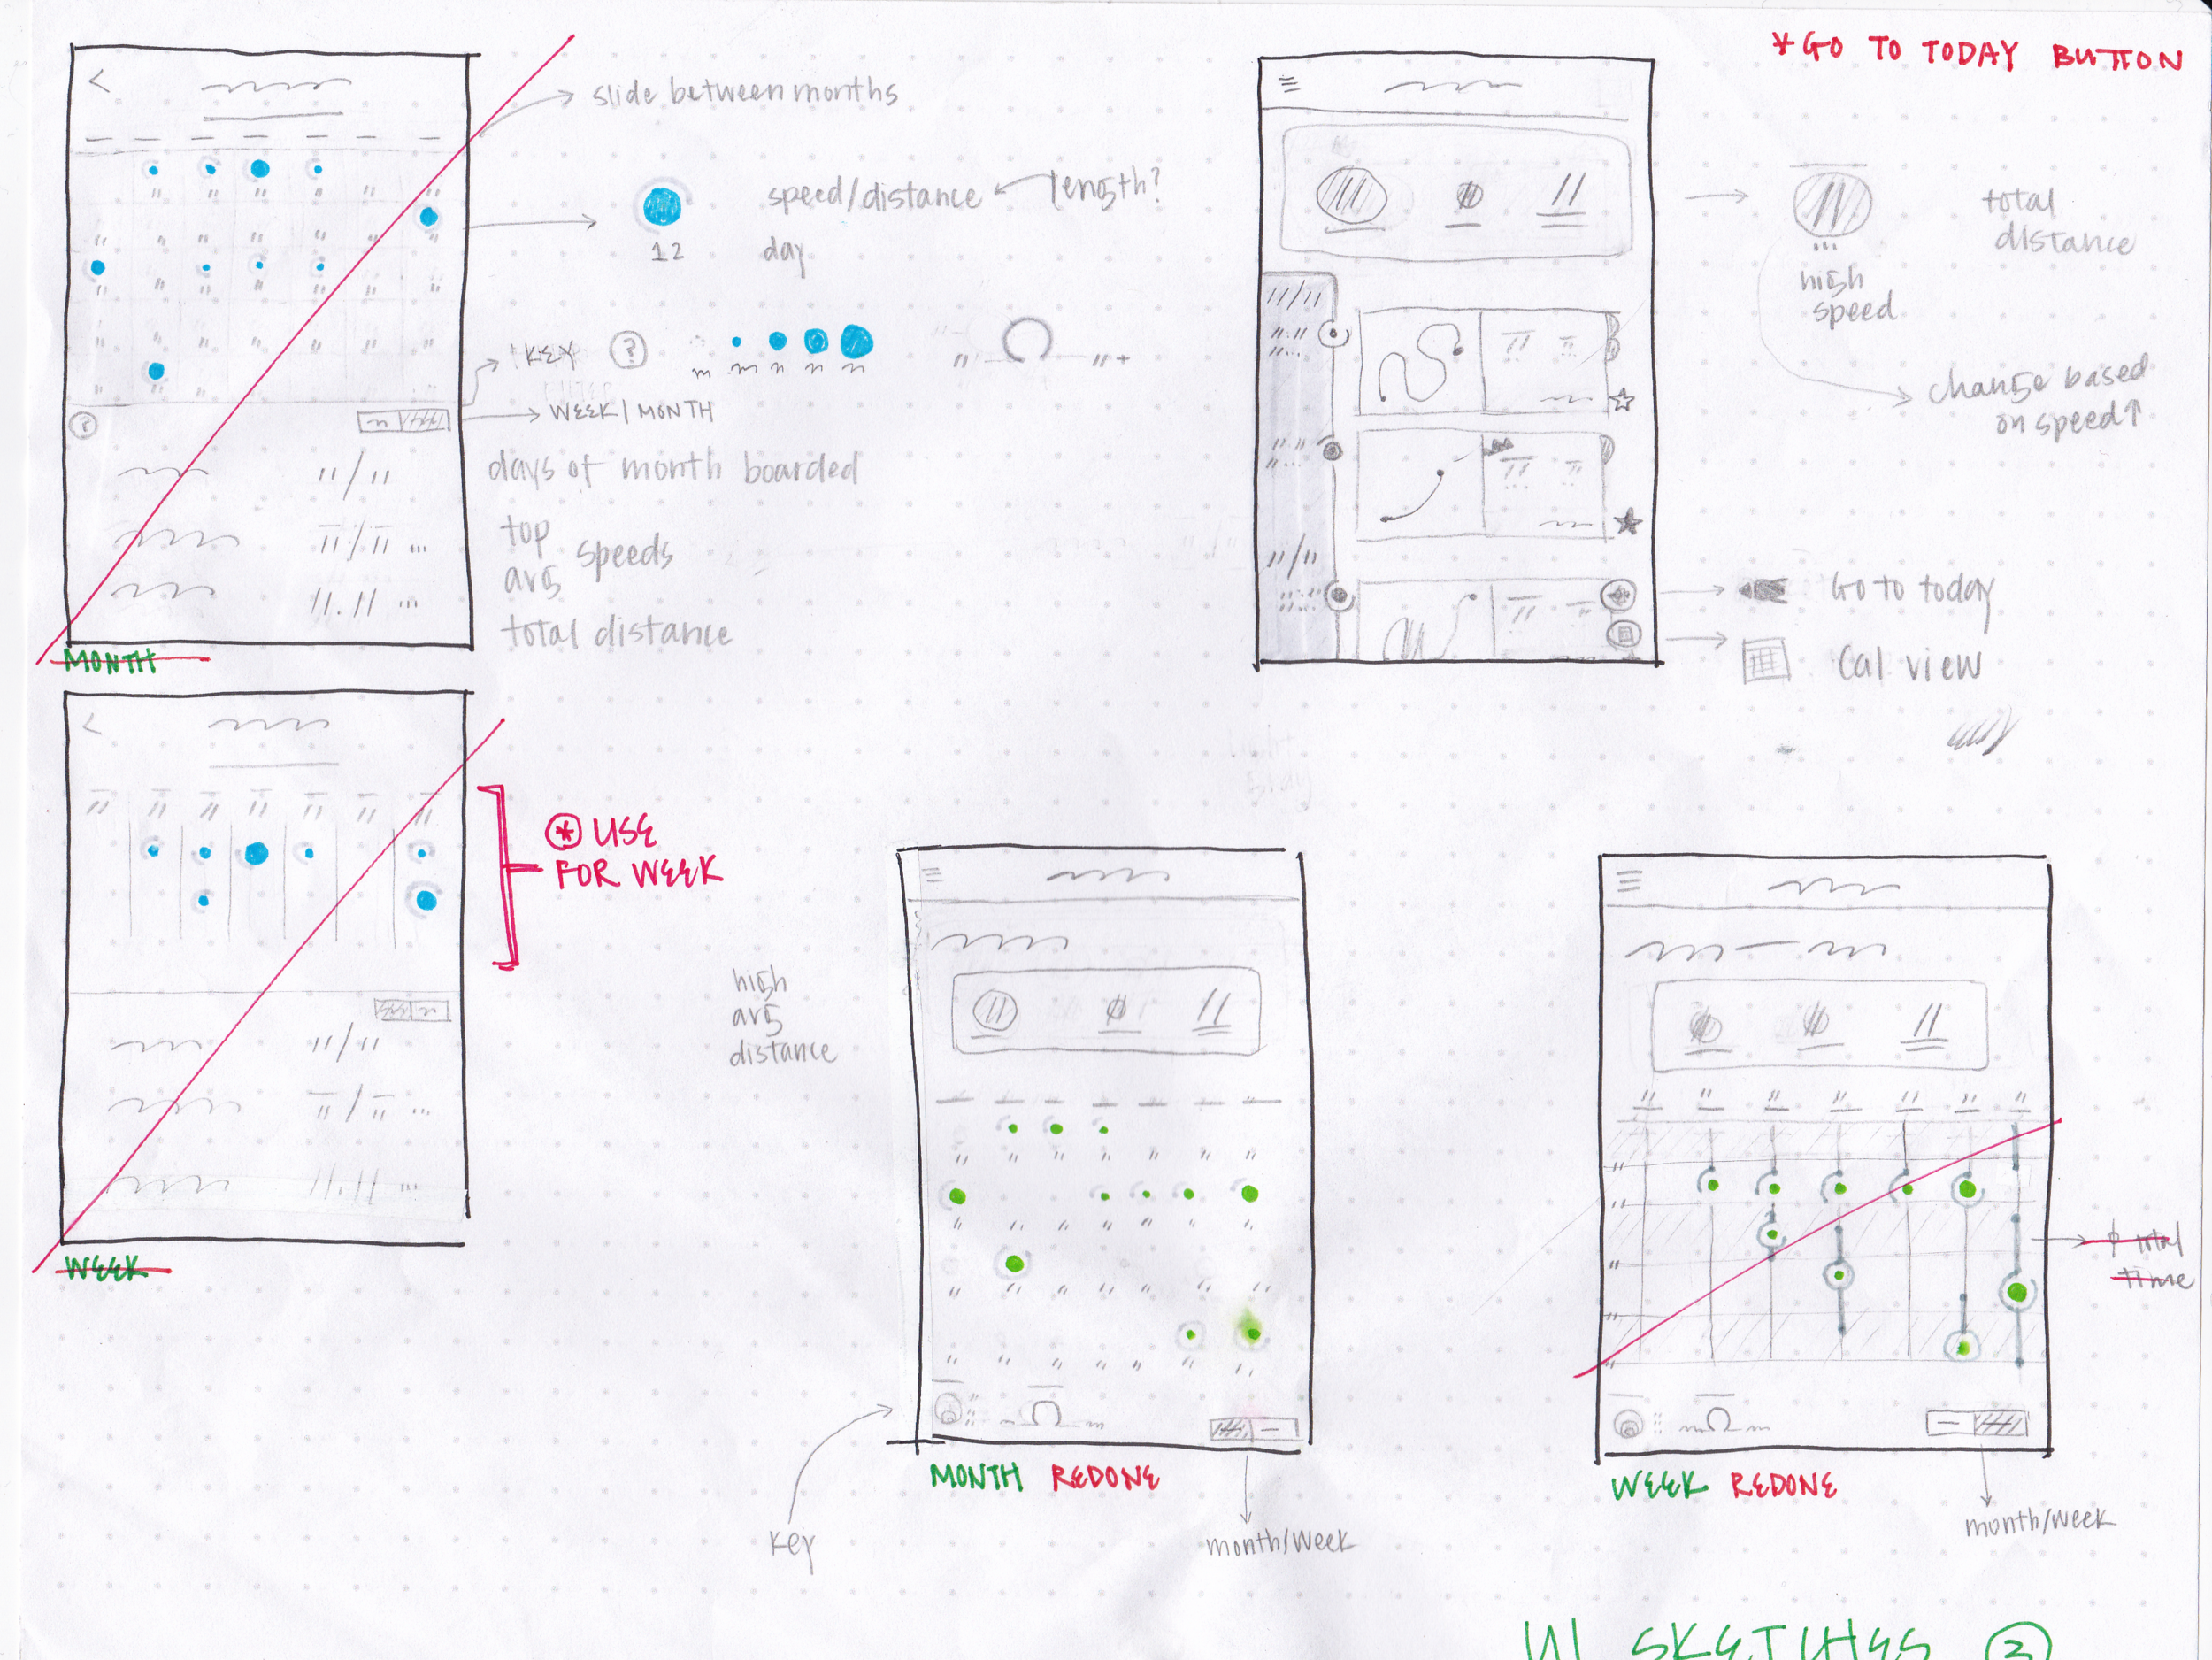 * GO TO TODAY BUTTON
slide between months
speed/distance
length?
12
day
KEY
?
WEEK/MONTH
?
days of month boarded
top
avg
speeds
total distance
MONTH
total
distance
high
speed
change based
on speed↑
Go to today
Cal view
* USE
FOR WEEK
high
avg
distance
WEEK
total
time
MONTH REDONE
WEEK REDONE
key
month/week
month/week
UI SKETCHES